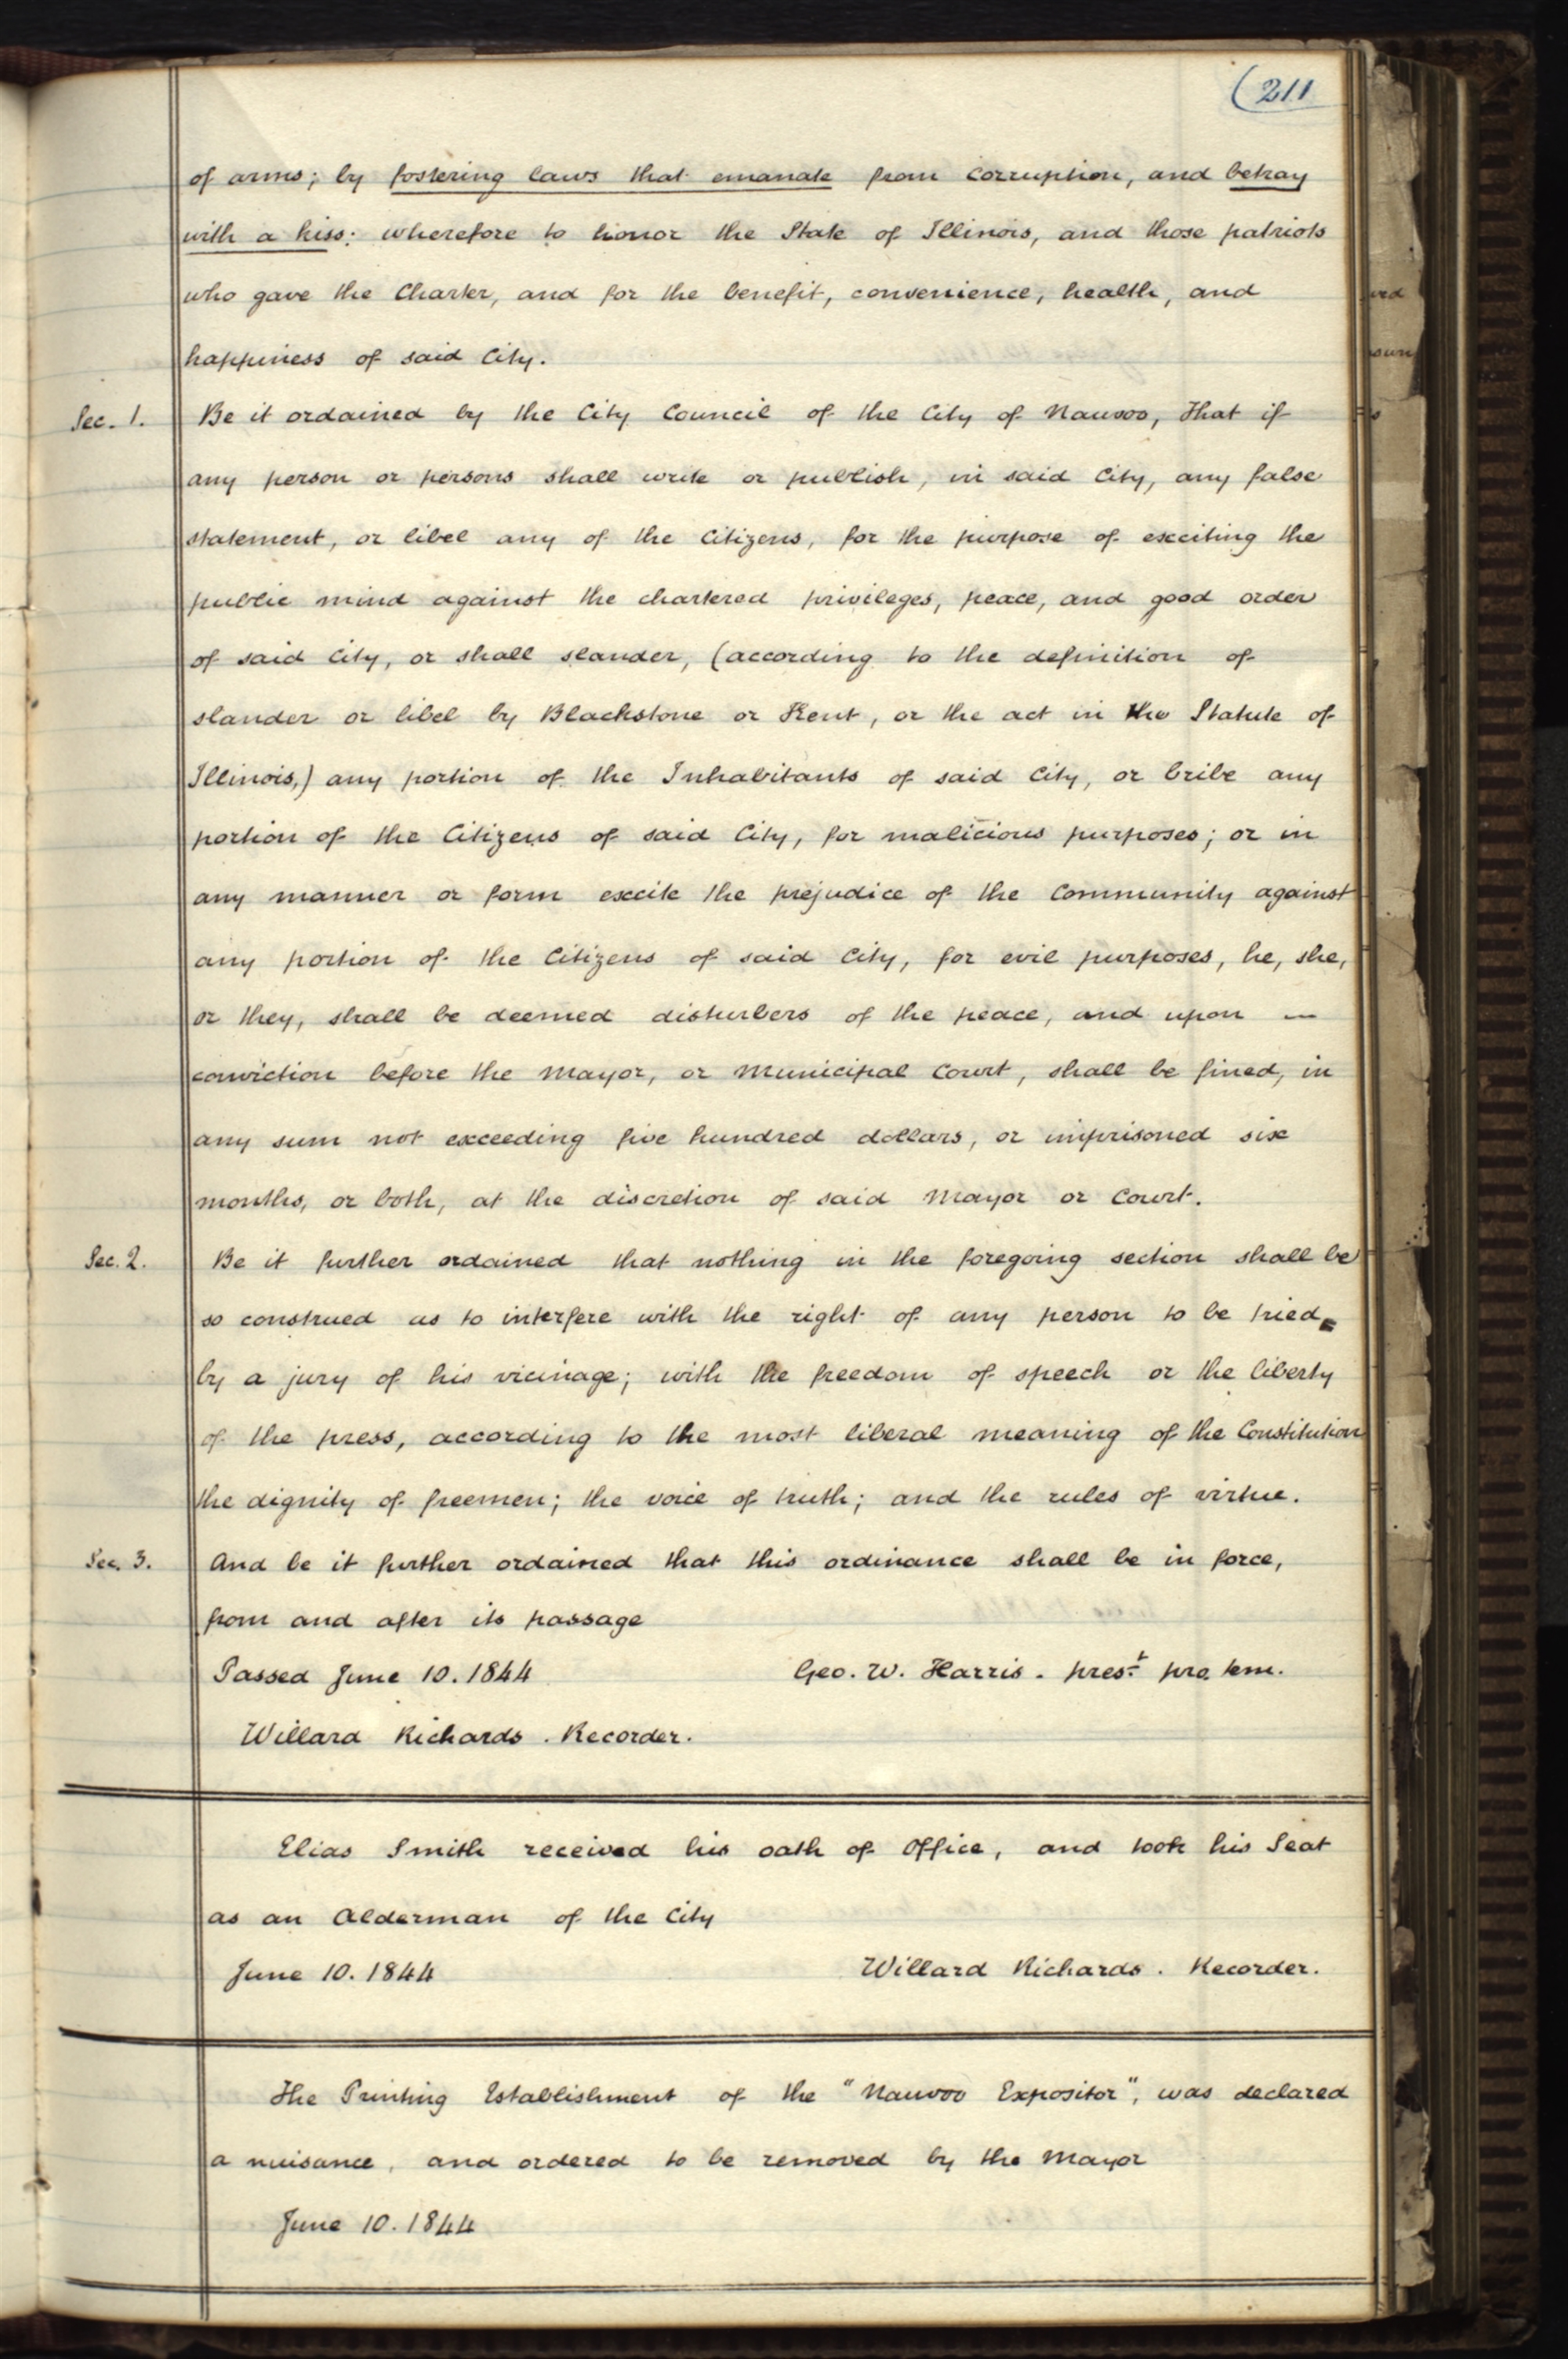 (211
of arms; by fostering laws that emanate from corruption, and betray
with a kiss: wherefore to honor the State of Illinois, and those patriots
who gave the Charter, and for the benefit, convenience, health, and
happiness of said City.
Sec. 1. Be it ordained by the City Council of the City of Nauvoo, That if
any person or persons shall write or publish, in said City, any false
statement, or libel any of the Citizens, for the purpose of exciting the
public mind against the chartered privileges, peace, and good order
of said City, or shall slander, (according to the definition of
slander or libel by Blackstone or Kent, or the act in the Statute of
Illinois,) any portion of the Inhabitants of said City, or bribe any
portion of the Citizens of said City, for malicious purposes; or in
any manner or form excite the prejudice of the Community against
any portion of the Citizens of said City, for evil purposes, he, she,
or they, shall be deemed disturbers of the peace, and upon —
conviction before the Mayor, or Municipal Court, shall be fined, in
any sum not exceeding five hundred dollars, or imprisoned six
months, or both, at the discretion of said Mayor or Court.
Sec. 2. Be it further ordained that nothing in the foregoing section shall be
so construed as to interfere with the right of any person to be tried
by a jury of his vicinage; with the freedom of speech or the liberty
of the press, according to the most liberal meaning of the Constitution
the dignity of freemen; the voice of truth; and the rules of virtue.
Sec. 3. And be it further ordained that this ordinance shall be in force,
from and after its passage
Passed June 10. 1844 Geo. W. Harris. prest. pro. tem.
Willard Richards. Recorder.
Elias Smith received his oath of Office, and took his Seat
as an Alderman of the City
June 10. 1844 Willard Richards. Recorder.
The Printing Establishment of the "Nauvoo Expositor", was declared
a nuisance, and ordered to be removed by the Mayor
June 10. 1844